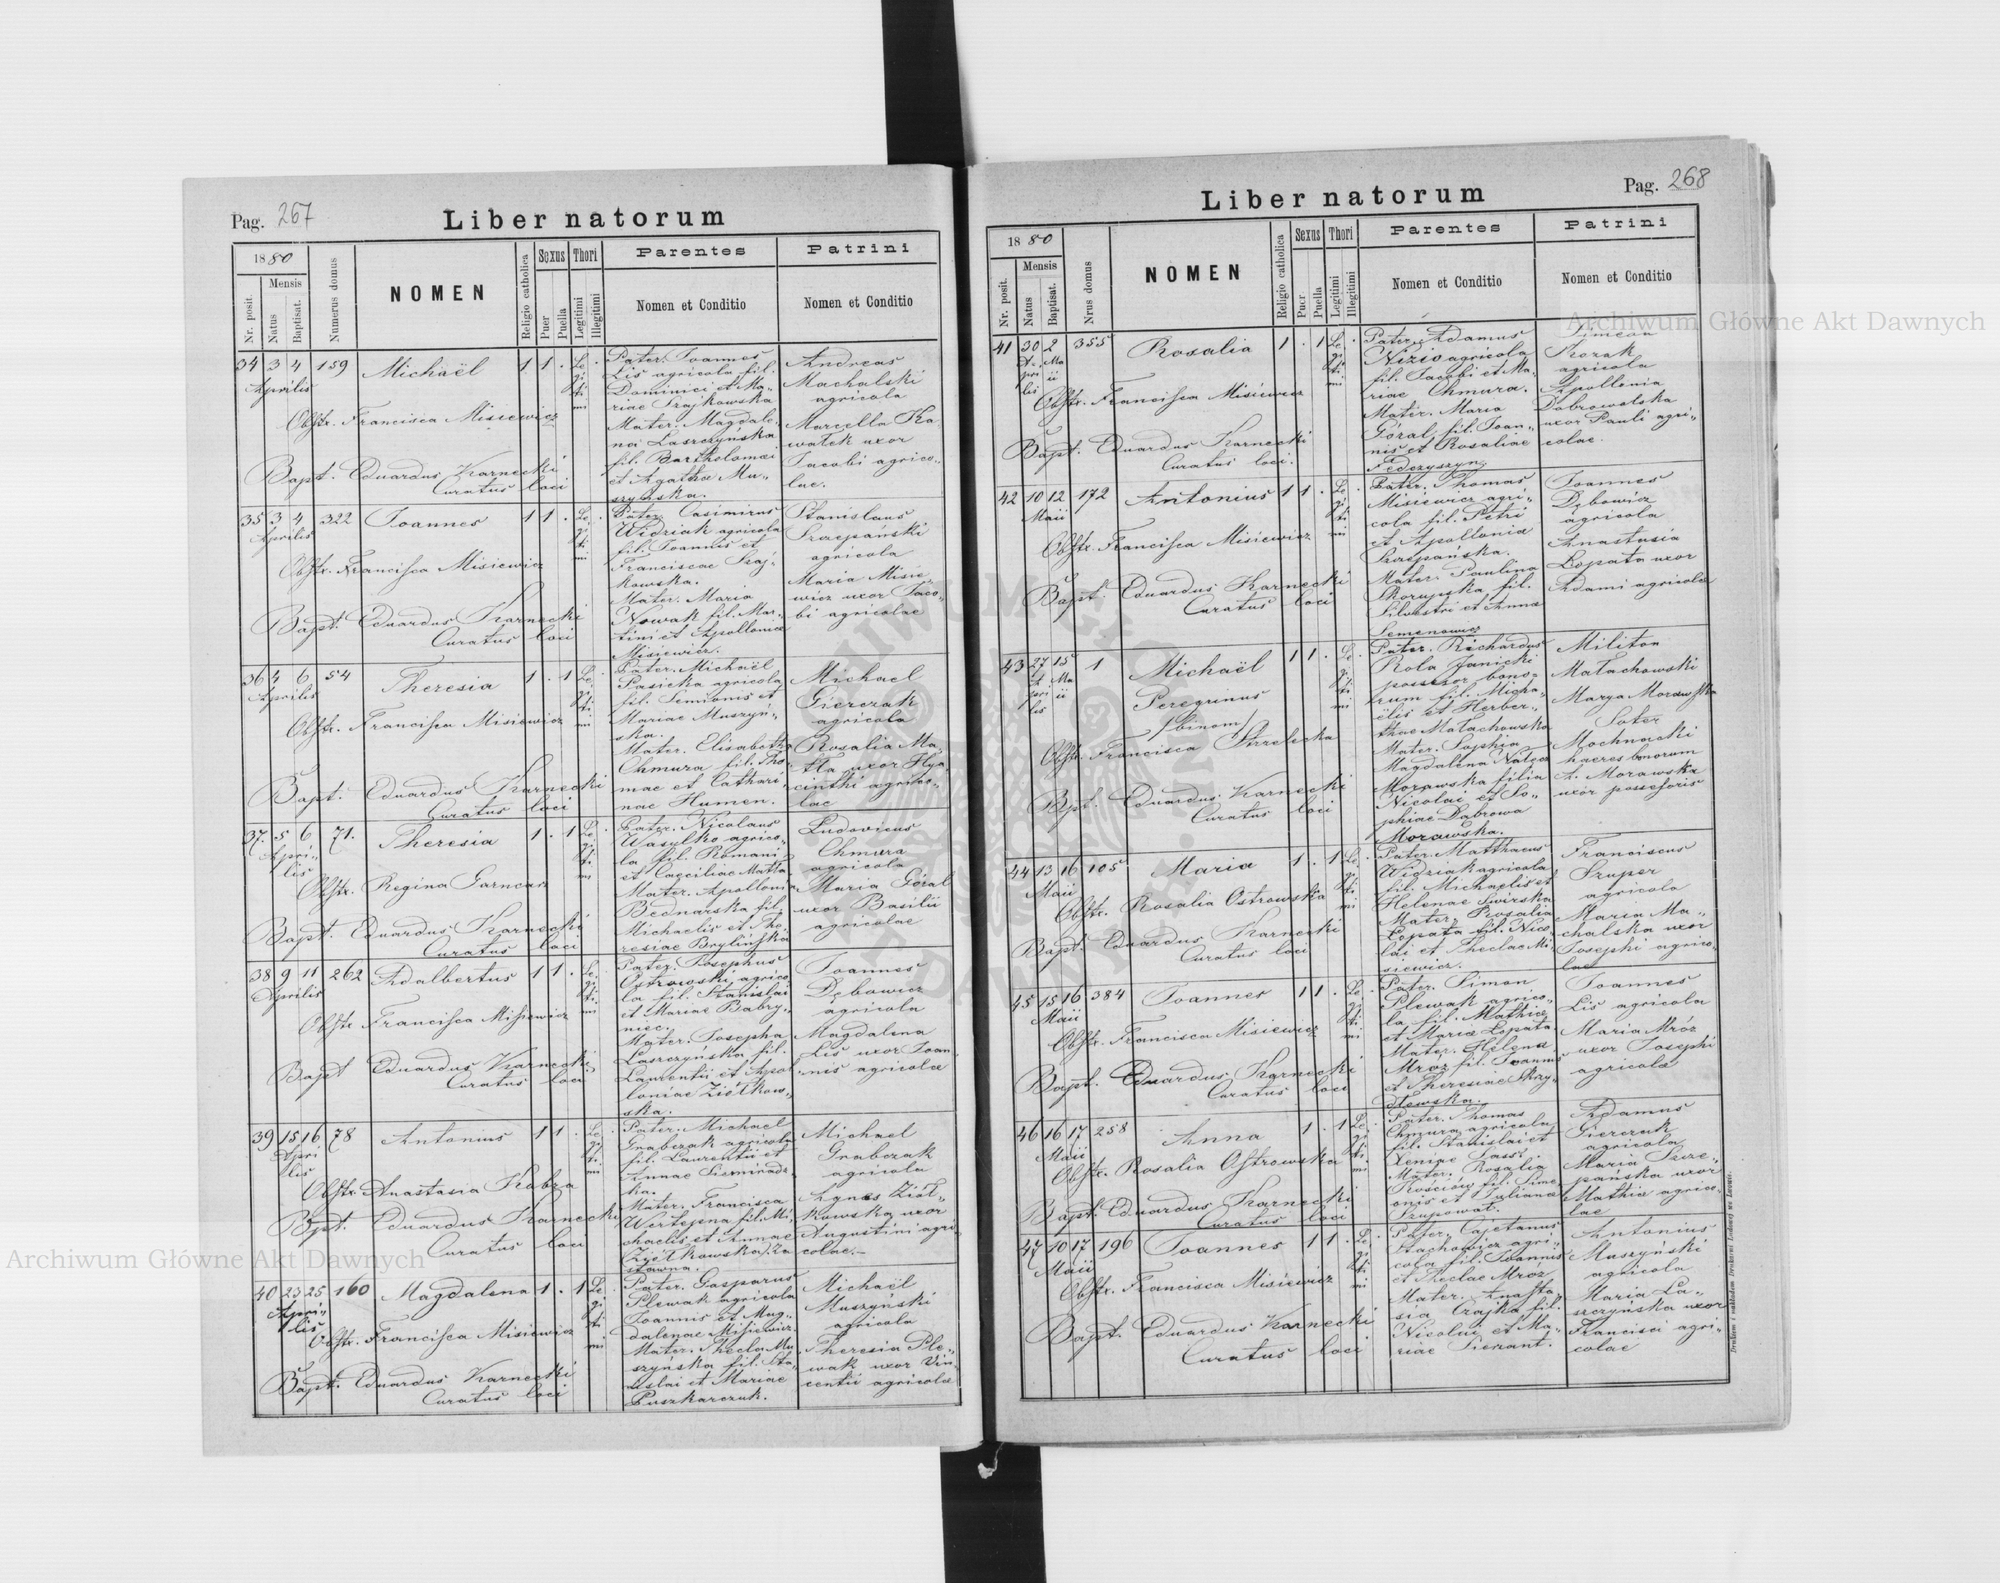 Pag. 267
Liber natorum
1880
Mensis
Nr. posit.
Natus
Baptisat.
Numerus domus
NOMEN
Religio catholica
Sexus
Puer
Puella
Thori
Legitimi
Illegitimi
Parentes
Nomen et Conditio
Patrini
Nomen et Conditio
34 3 4 159 Michaël 1 1 .
Aprilis
Obstr. Francisca Misiewicz
Bapt. Eduardus Karnecki
Curatus loci
Le
gi
ti
mi
Pater. Joannes
Lis agricola fil.
Dominici et Ma-
riae Szajkowska
Mater. Magdale-
na Laszczyńska
fil. Bartholomaei
et Agatha Mu-
szyńska.
Andreas
Machalski
agricola
Marcella Ka
wałek uxor
Jacobi agrico-
lae.
35 3 4 322 Joannes 1 1 .
Aprilis
Obstr. Francisca Misiewicz
Bapt. Eduardus Karnecki
Curatus loci
Le
gi
ti
mi
Pater. Casimirus
Widziak agricola
fil. Joannis et
Franciscae Szaj-
kowska.
Mater. Maria
Nowak fil. Mar-
tini et Apolloniae
Misiewicz.
Stanislaus
Szczepański
agricola
Maria Misie-
wicz uxor Jaco-
bi agricolae
36 4 6 54 Theresia 1 . 1
Aprilis
Obstr. Francisca Misiewicz
Bapt. Eduardus Karnecki
Curatus loci
Le
gi
ti
mi
Pater. Michaël
Pasieka agricola
fil. Semionis et
Mariae Muszyń-
ska.
Mater. Elisabetha
Chmura fil. Tho
mae et Cathari
nae Humen.
Michael
Gierczak
agricola
Rosalia Ma-
tła uxor Hya
cinthi agrico-
lae
37. 5 6 71. Theresia 1 . 1
Apri-
lis
Obstr. Regina Garncarz
Bapt. Eduardus Karnecki
Curatus loci
Le
gi
ti
mi
Pater. Nicolaus
Wasylko agrico-
la fil. Romani
et Caeciliae Matła
Mater. Apollonia
Bednarska fil.
Michaelis et The
resiae Brylińska
Ludovicus
Chmura
agricola
Maria Góral
uxor Basilii
agricolae
38 9 11 262 Adalbertus 1 1 .
Aprilis
Obstr Francisca Misiewicz
Bapt Eduardus Karnecki
Curatus loci
Le
gi
ti
mi
Pater. Josephus
Ostrowski agrico
la fil. Stanislai
et Mariae Babry-
niec.
Mater. Josepha
Laszczyńska fil.
Laurentii et Apol
loniae Ziółkow-
ska.
Joannes
Dębowicz
agricola
Magdalena
Lis uxor Joan
nis agricolae
39 15 16 78 Antonius 1 1 .
Apri
lis
Obstr. Anastasia Kabza
Bpt. Eduardus Karnecki
Curatus loci
Le
gi
ti
mi
Pater. Michael
Grabczak agricola
fil. Laurentii et
Annae Siemiradz
ka.
Mater. Francisca
Wertejena fil. Mi-
chaelis et Annae
Michael
Grabczak
agricola
Agnes Ziół-
kowska uxor
Augustini agri
colae.-
40 23 25 160 Magdalena 1 . 1
Apri-
lis
Obstr. Francisca Misiewicz
Bapt. Eduardus Karnecki
Curatus loci
Le
gi
ti
mi
Pater. Gasparus
Plewak agricola
Joannis et Mag-
dalenae Misiewicz.
Mater. Thecla Mu
szyńska fil. Sta-
nislai et Mariae
Puszkarczuk.
Michaël
Muszyński
agricola
Theresia Ple-
wak uxor Vin
centii agricolae
Pag. 268
Liber natorum
1880
Mensis
Nr. posit.
Natus
Baptisat.
Nrus domus
NOMEN
Religio catholica
Sexus
Puer
Puella
Thori
Legitimi
Illegitimi
Parentes
Nomen et Conditio
Patrini
Nomen et Conditio
41 30 2 355 Rosalia 1 . 1
Obstr. Francisca Misiewicz
Bapt. Eduardus Karnecki
Curatus loci.
Le
gi
ti
mi
Pater. Adamus
Nizio agricola
fil. Jacobi et Ma-
riae Chmura.
Mater. Maria
Góral fil. Joan-
nis et Rosaliae
Fedczyszyn
Simeon
Kozak
agricola
Apollonia
Dobrowolska
uxor Pauli agri-
colae.
42 10 12 172 Antonius 1 1 .
Maii
Obstr. Francisca Misiewicz
Bapt. Eduardus Karnecki
Curatus loci
Le
gi
ti
mi
Pater. Thomas
Misiewicz agri-
cola fil. Petri
et Apollonia
Szczepańska.
Mater. Paulina
Skorupska fil.
Silvestri et Annae
Semenowicz
Joannes
Dębowicz
agricola
Anastasia
Łopata uxor
Adami agricolae
43 27 15 1 Michaël 1 1 .
Peregrinus
/binom/
Obstr. Francisca Strzelecka
Bpt. Eduardus Karnecki
Curatus loci
Le
gi
ti
mi
Pater. Richardus
Rola Janicki
possesor bono-
rum fil. Micha-
ëlis et Herber-
thae Małachowska
Mater. Sophia
Magdalena Nałęcz
Morawska filia
Nicolai et So-
phiae Dąbrowa
Morawska.
Militon
Małachowski
Marya Morawska
Soter
Mochnacki
haeres bonorum
A. Morawska
uxor possesoris
44 13 16 105 Maria 1 . 1
Maii
Obstr. Rosalia Ostrowska
Bapt. Eduardus Karnecki
Curatus loci
Le
gi
ti
mi
Pater. Matthaeus
Widziak agricola
fil. Michaelis et
Helenae Świrska
Mater. Rosalia
Łopata fil. Nico-
lai et Theclae Mi-
siewicz.
Franciscus
Szuper
agricola
Maria Ma-
chalska uxor
Josephi agrico-
lae
45 15 16 384 Joannes 1 1 .
Maii
Obstr. Francisca Misiewicz
Bapt. Eduardus Karnecki
Curatus loci
Le
gi
ti
mi
Pater. Simon
Plewak agrico-
la fil. Mathiae
et Mariae Łopata
Mater. Helena
Mroz fil. Joannis
et Theresiae Skrzy-
dlewska.
Joannes
Lis agricola
Maria Mróz
uxor Josephi
agricolae
46 16 17 258 Anna 1 . 1
Maii
Obstr. Rosalia Ostrowska
Bapt. Eduardus Karnecki
Curatus loci
Le
gi
ti
mi
Pater. Thomas
Chmura agricola
fil. Stanislai et
Xeniae Sass.
Mater. Rosalia
Kościów fil. Sime
onis et Julianae
Szupowat.
Adamus
Gierczak
agricola
Maria Szcze-
pańska uxor
Mathiae agrico-
lae
47 10 17 196 Joannes 1 1 .
Maii
Obstr. Francisca Misiewicz
Bapt. Eduardus Karnecki
Curatus loci
Le
gi
ti
mi
Pater. Cajetanus
Stachowicz agri-
cola fil. Joannis
et Theclae Mróz
Mater. Anasta
sia Czajka fil.
Nicolai et Ma-
riae Sierżant.
Antonius
Muszyński
agricola
Maria La-
szczyńska uxor
Francisci agri-
colae
Drukiem i nakładem Drukarni Ludowej we Lwowie.
Archiwum Główne Akt Dawnych
Archiwum Główne Akt Dawnych